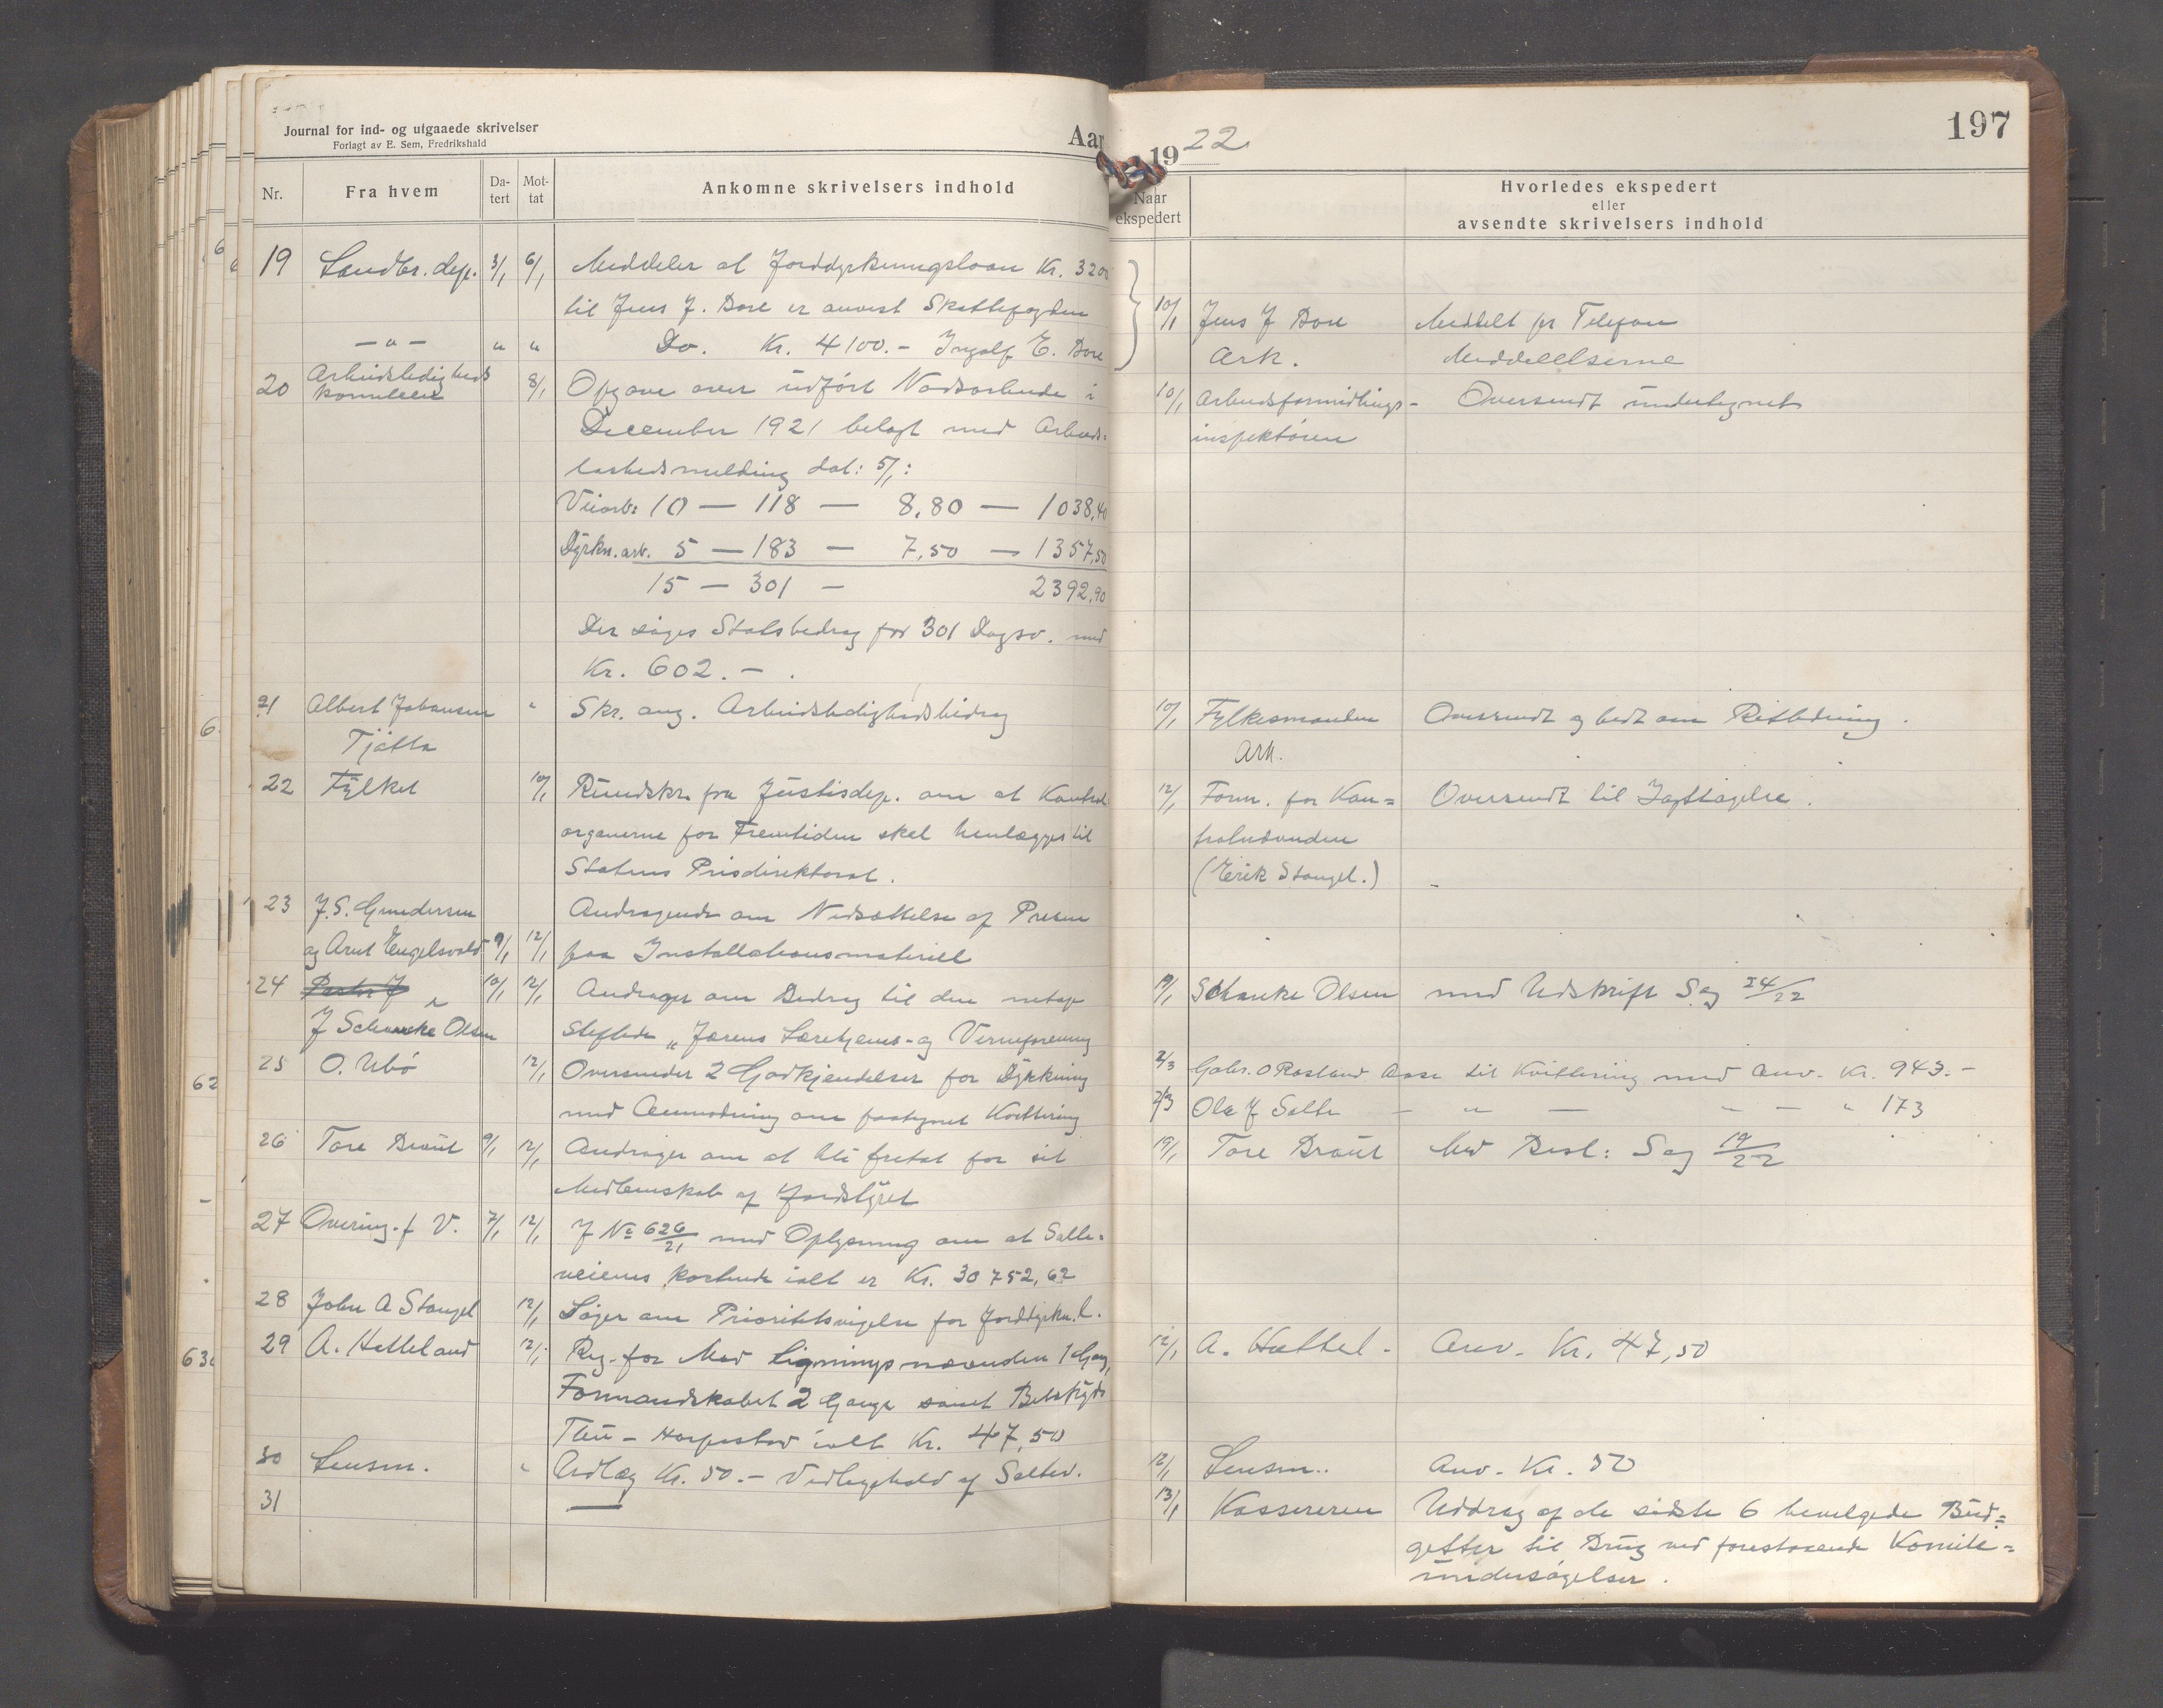 Journal for ind- og utgaaede skrivelser
Forlagt av E. Sem, Fredrikshald
Aar
1922
197
Nr.
Fra hvem
Da-
tert
Mot-
tat
Ankomne skrivelsers indhold
Naar
ekspedert
Hvorledes ekspedert
eller
avsendte skrivelsers indhold
19 Landbr. dep. 3/1 6/1 Meddeler at Jorddyrkningslaan Kr. 3200
til Jens J. Bore er anvist Skattefogden
10/1 Jens J Bore Meddelt pr Telefon
— „ — „ „ Do. Kr. 4100.- Ingolf E. Bore
Ark. Meddelelserne
20 Arbeidsledigheds
komiteen 8/1 Opgave over udført Nødsarbeide i
10/1 Arbeidsformidlings- Oversendt undertegnet
December 1921 belagt med Arbeids=
inspektøren
løshedsmelding dat: 5/1:
Veiarb: 10 — 118 — 8,80 — 1038,40
Dyrkn. arb. 5 — 183 — 7,50 — 1357,50
15 — 301 — 2392,90
Der søges Statsbedrag for 301 Dagsv. med
Kr. 602.-.
21 Albert Johansen „ Skr. ang. Arbeidsledighedsbidrag
Tjøtta
10/1 Fylkesmanden Oversendt og bedt om Retledning.
Ark.
22 Fylket 10/1 Rundskr. fra Justisdep. om at Kontrol
12/1 Form. for Kon= Oversendt til Iagttagelse.
organerne for Fremtiden skal henlægges til
trolnævnden
Statens Prisdirektorat.
(Erik Stangel.)
23 J. S. Gundersen Andragende om Nedsættelse af Prisen
og Arnt Engelsvold 9/1 12/1 paa Installationsmateriell
24 Pastor J 10/1 12/1 Andrager om Bidrag til den
J Schancke Olsen stiftede „Jærens Lærehjems- og Verneforening
19/1 Schanke Olsen med Udskrift Sag 24/22
25 O. Ubø 12/1 Oversender 2 Godkjendelser for Dyrkning
med Anmodning om paategnet Kvittering
2/3 Gabr. O Rosland Aase til Kvittering med Anv. Kr. 943.-
2/3 Ole J Salte — „ — „ — „ 173
26 Tore Braut 9/1 12/1 Andrager om at bli fritat for sit
Medlemskab af Jordstyret
19/1 Tore Braut Med Besl: Sag 19/22
27 Overing. f V. 7/1 12/1 J № 626/21 med Oplysning om at Salte-
veiens kostende ialt er Kr. 30752,62
28 John A Stangel 12/1 Søger om Prioritetsvigelse for Jorddyrkn. l.
29 A. Hatteland 12/1 Reg. for Mød Ligningsnævnden 1 Gang,
Formandskabet 2 Gange samt
Thu - Harpestad ialt Kr. 47,50
12/1 A. Hattel. Anv. Kr. 47,50
30 Lensm. „ Udlæg Kr. 50.- Vedligehold af Saltev.
12/1 Lensm. Anv. Kr. 50
31 —
13/1 Kassereren Uddrag af de sidste 6 bevilgede Bud=
getter til Brug ved forestaaende Komite=
undersøgelser.
6
6
6
62
63